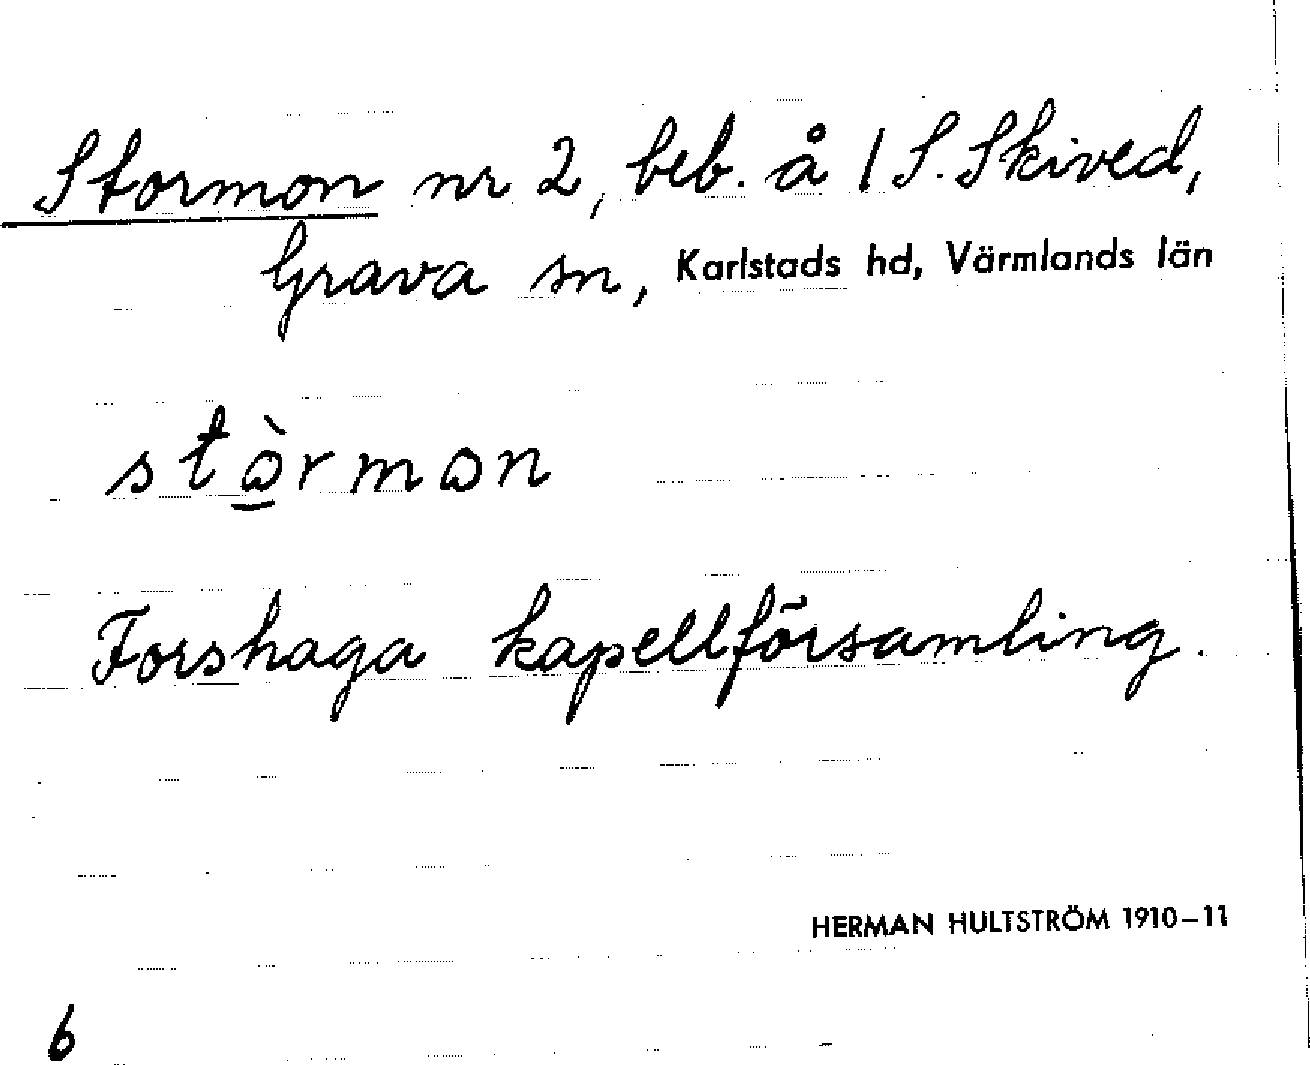 Stormon nr 2, beb. å 1 S. Skived,
Grava sn, Karlstads hd, Värmlands län
stòrmon
Forshaga kapellförsamling.
HERMAN HULTSTRÖM 1910–11
6